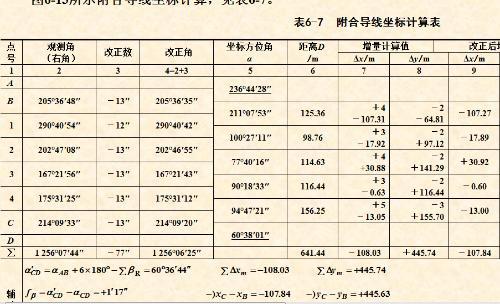 表6-7 附合导线坐标计算表
点号 观测角（右角） 改正数 改正角 坐标方位角 α 距离D /m 增量计算值 Δx/m Δy/m 改正后 Δx/m
1 2 3 4=2+3 5 6 7 8 9
A
236°44′28″
B 205°36′48″ −13″ 205°36′35″
211°07′53″ 125.36 +4 −107.31 −2 −64.81 −107.27
1 290°40′54″ −12″ 290°40′42″
100°27′11″ 98.76 +3 −17.92 −2 +97.12 −17.89
2 202°47′08″ −13″ 202°46′55″
77°40′16″ 114.63 +4 +30.88 −2 +141.29 +30.92
3 167°21′56″ −13″ 167°21′43″
90°18′33″ 116.44 +3 −0.63 −2 +116.44 −0.60
4 175°31′25″ −13″ 175°31′12″
94°47′21″ 156.25 +5 −13.05 −3 +155.70 −13.00
C 214°09′33″ −13″ 214°09′20″
60°38′01″
D
Σ 1256°07′44″ −77″ 1256°06′25″ 641.44 −108.03 +445.74 −107.84
α′CD=αAB+6×180°−∑βR=60°36′44″ ∑Δxm=−108.03 ∑Δym=+445.74
辅
fβ=α′CD−αCD=+1′17″ −)xC−xB=−107.84 −)yC−yB=+445.63